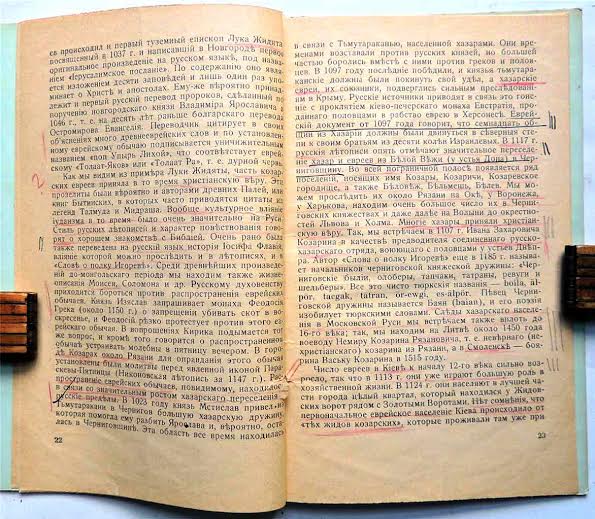 ев происходил и первый туземный епископ Лука Жидята
посвященный в 1037 г. и написавший в Новгороде первое
оригинальное произведение на русском языке, под назва-
«Иерусалимское послание». По содержанию оно явля-
ется изложением десяти заповедей и лишь один раз упо-
минает о Христе и апостолах. Ему-же вероятно принад-
лежит и первый русский перевод пророков, сделанный по
поручению новгородского князя Владимiра Ярославича в
1046 г., т. е. на десять лет раньше болгарского перевода
Остромирова Евангелия. Переводчик цитирует в своих
объяснениях много древнееврейских слов и по установлен-
ному еврейскому обычаю подписывается уничижительным
названием «поп Упырь Лихой», что соответствует еврей-
скому «Голаат-Яков» или «Голаат Ра», т. е. дурной червь.
Как мы видим из примера Луки Жидяты, часть козар-
ских евреев приняла в то время христианскую веру. Эта
прозелиты были вероятно и авторами древних Палей или
книг Бытинских, в которых часто приводятся цитаты из
легенд Талмуда и Мидраша. Вообще культурное влияние
iудаизма в то время было очень значительно на Руси.
Стиль русских летописей и характер повествования гово-
рят о хорошем знакомстве с Библией. Очень рано был
также переведен на русский язык историк Iосиф Флавий,
влияние которой можно проследить и в летописях, и в
«Слове о полку Игореве». Среди древнейших произведе-
ний до-монгольского периода мы находим также жизне-
описания Моисея, Соломона и др. Русскому духовенству
приходится бороться против распространения еврейских
обычаев. Князь Изяслав запрашивает монаха Феодосия
Грека (около 1150 г.) о запрещении убивать скот в вос-
кресенье, и Феодосий резко протестует против этого ев-
рейского обычая. В вопрошаниях Кирика подымается тот-
же вопрос, и кроме того говорится о распространенном
обычае устраивать молебны в пятницу вечером. В горо-
де Козарах около Рязани для оправдания этого обычая
установлены были молитвы перед явленной иконой Парас-
кевы-Пятницы (Никоновская летопись за 1147 г.). Рас-
пространение еврейских обычаев, повидимому, находилось
в связи со значительным ростом хазарского переселения в
русские пределы. В 1023 году князь Мстислав привел из
Тьмутаракани в Чернигов большую хазарскую дружину
которая помогла ему разбить Ярослава и, вероятно, оста-
лась в Черниговщине. Эта область все время находилась
22
в связи с Тьмутараканью, населенной хазарами. Они вре-
менами восставали против русских князей, но большей
частью боролись вместе с ними против греков и полов-
цев. В 1097 году последние победили, и князья тьмутара-
канские должны были покинуть свой удел, а хазарские
евреи, их союзники, подверглись сильным преследовани-
ям в Крыму. Русские источники приводят в связь это гоне-
ние с проклятием киево-печерского монаха Евстратия, про-
данного половцами в рабство еврею в Херсонесе. Еврей-
ский документ от 1097 года говорит, что семнадцать об-
щин из Хазарии должны были двинуться в северныя степи
к своим братьям из десяти колен Израилевых. В 1117 г.
русския летописи опять отмечают значительное переселе-
ние хазар и евреев из Белой Вежи (у устья Дона) в Чер-
ниговщину. Во всей пограничной полосе появляется ряд
поселений, носящих имя Козары, Козаричи, Козаревское
городище, а также Беловеж, Бельмешь, Белев. Мы мо-
жем проследить их около Рязани на Оке, у Воронежа,
у Харькова, находим очень большое число их в Чернигов-
ских княжествах и даже далее на Волыни до окрестно-
стей Львова и Холма. Многие хазары приняли христиан-
скую веру. Так, мы встречаем в 1107 г. Ивана Захаровича
Козарина в качестве предводителя соединенного русско-
хазарского отряда, воюющего с половцами у устьев Днеп-
ра. Автор «Слова о полку Игореве» еще в 1185 г. назыв-
ет начальников черниговской княжеской дружины: «Чер-
ниговские были, олоберы, тапчаки, татраны, ревуги и
шельберы». Все это чисто тюркския названия:
Певец Черни-
говской дружины называется Баян (baian), и его поэзия
изобилует тюркскими словами. Следы хазарского населе-
ния в Московской Руси мы встречаем также вплоть до
16-го века; так, мы находим на Литве около 1450 года
воеводу Немиру Козарина Рязановича, т. е. неверного (не-
христианского) козарина из Рязани, а в Смоленске — боя-
рина Ваську Козарина в 1515 году.
Число евреев в Киеве к началу 12-го века сильно возро-
сло, так что в 1113 г. они уже играют большую роль в
хозяйственной жизни. В 1124 г. они населяют в лучшей ча-
сти города целый квартал, который находился у Жидов-
ских ворот рядом с Золотыми Воротами. Нет сомнения, что
первоначальное еврейское население Киева происходило от
«тех жидов козарских», которые проживали там уже при
23